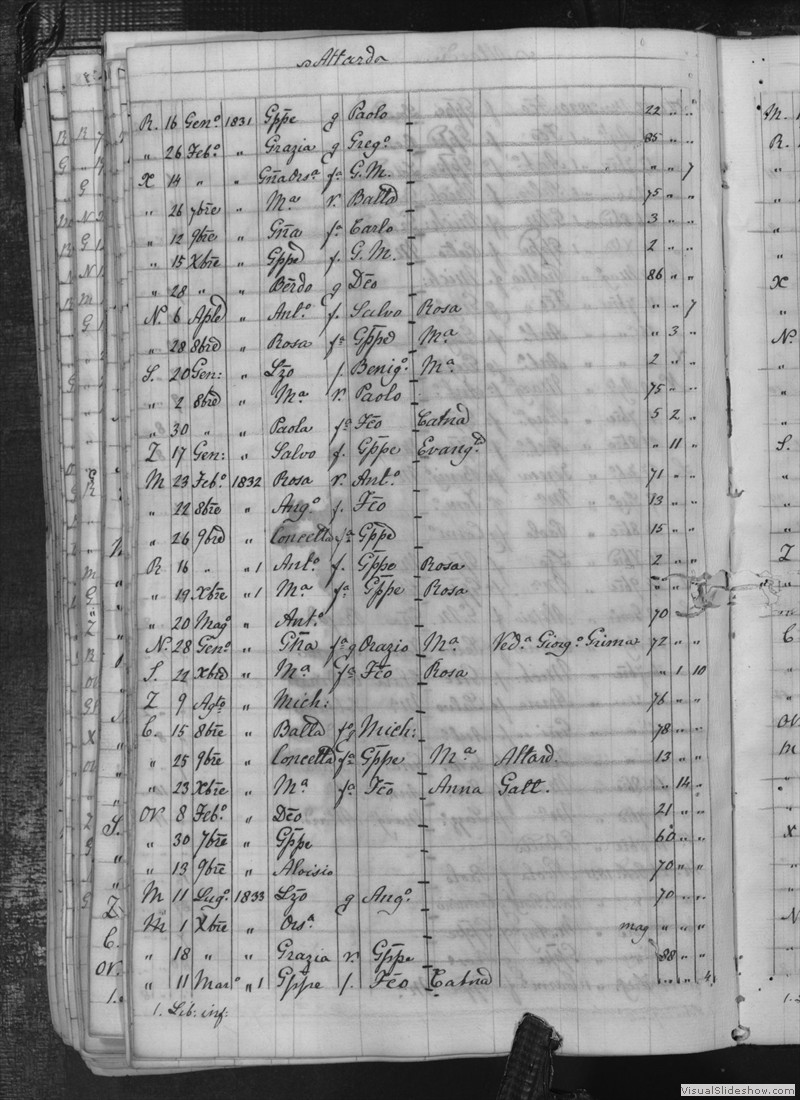 Attarda
R. 16 Genº 1831 Gppe g Paolo 22 " "
" 26 Febº " Grazia g Gregº 85 " "
X 14 " " Gña Orsª fª G. M. " " 7
" 26 7bre " Mª v. Battª 75 " "
" 12 9bre " Gña fª Carlo 3 " "
" 15 Xbre " Gppe f. G. M. 2 " "
" 28 " " Berdo g Dco 86 " "
N. 6 Aple " Antº f. Salvo Rosa " " 7
" 28 8bre " Rosa fª Gppe Mª " 3 "
S. 20 Gen: " Lzo f. Benigº Mª 2 " "
" 2 8bre " Mª v. Paolo 75 " "
" 30 " " Paola fª Fco Catna 5 2 "
Z 17 Gen: " Salvo f. Gppe Evangª " 11 "
M 23 Febº 1832 Rosa v. Antº 71 " "
" 22 8bre " Angº f. Fco 13 " "
" 26 9bre " Concetta fª Gppe 15 " "
R 16 " " 1 Antº f. Gppe Rosa 2 " "
" 19 Xbre " 1 Mª fª Gppe Rosa " " "
" 20 Magº " Antº 70 " "
N. 28 Genº " Gña fª g Orazio Mª Vedª Giorgº Grima 72 " "
S. 22 Xbre " Mª fª Fco Rosa " 1 10
Z 9 Agto " Mich: 76 " "
C. 15 8bre " Batta fº g Mich: 78 " "
" 25 9bre " Concetta fª Gppe Mª Attard. 13 " "
" 23 Xbre " Mª fª Fco Anna Gatt. " 14 "
OV 8 Febº " Dco 21 " "
" 30 7bre " Gppe 60 " "
" 13 9bre " Aloisio 70 " "
M 11 Lugº 1833 Lzo g Angº 70 " "
M 1 Xbre " Orsª mag " " "
" 18 " " Grazia v. Gppe 88 " "
" 11 Marº " 1 Gppe f. Fco Catna " " 4
1. Lib: inf:
VisualSlideshow.com